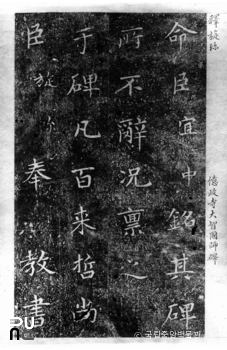 釋旋珍
億政寺大智國師碑
命臣宜中銘其碑
所不辭況稟之
于碑凡百来哲尚
臣旋奉教書
© 국립중앙박물관